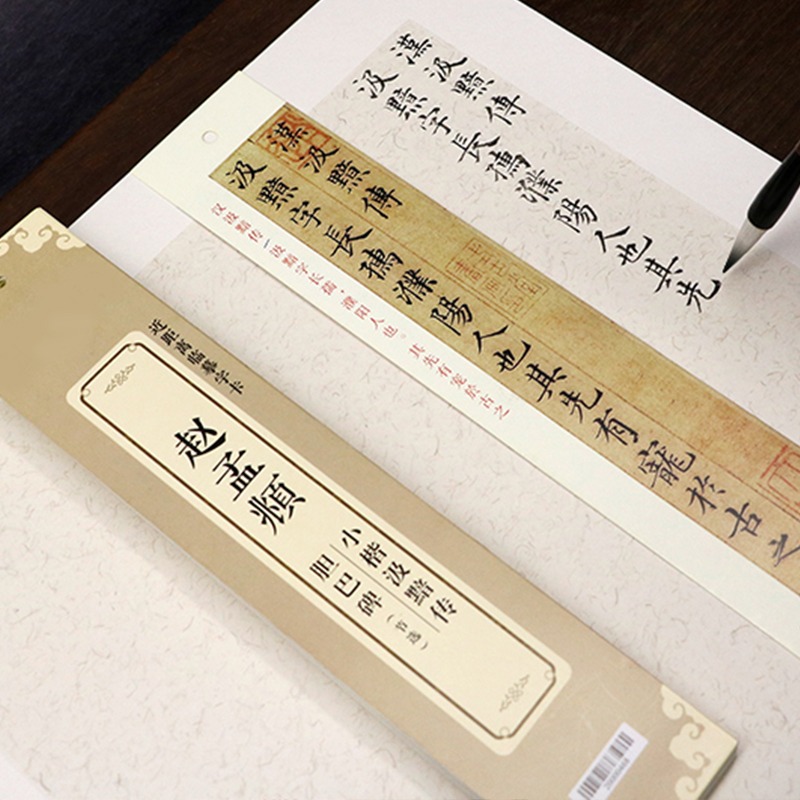 漢汲黯傳
汲黯字長孺濮陽人也其先
漢汲黯傳
汲黯字長孺濮陽人也其先有寵於古之
汉汲黯传 汲黯字长孺，濮阳人也。其先有宠於古之
近距离临摹字卡
赵孟頫
小楷汲黯传
胆巴碑（节选）